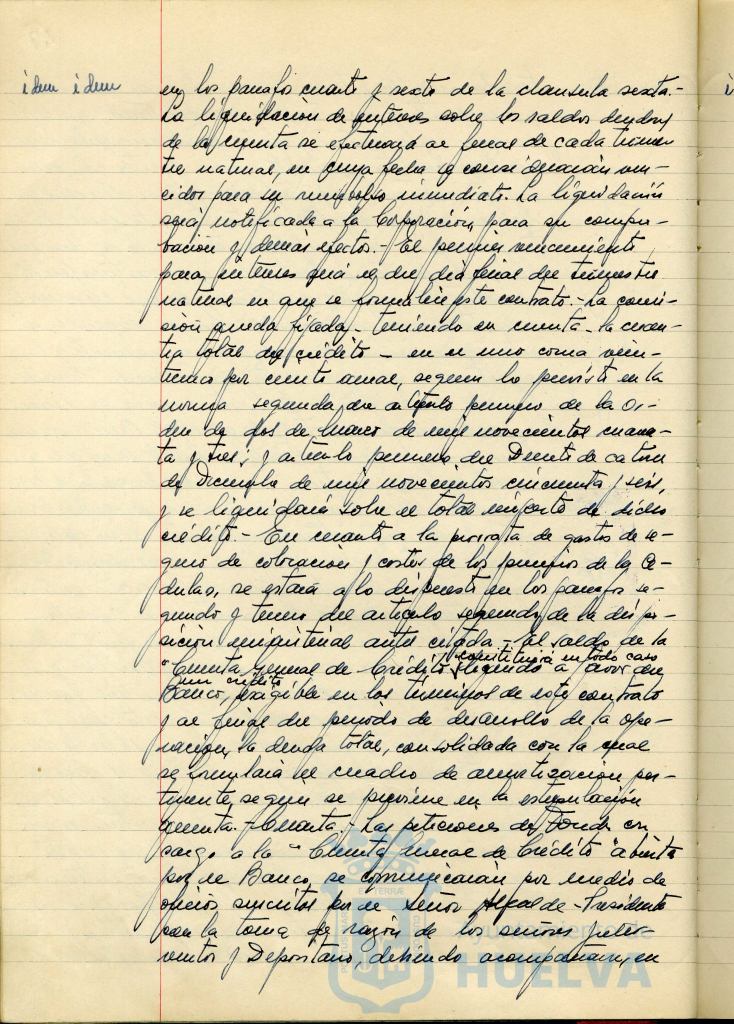 idem idem
en los parrafos cuarto y sexto de la clausula sexta.-
La liquidación de intereses sobre los saldos deudores
de la cuenta se efectuará al final de cada trimes-
tre natural, en cuya fecha se considerarán ven-
cidos para su reembolso inmediato. La liquidación
será notificada a la Corporación, para su compro-
bación y demás efectos.- El primer vencimiento
para intereses será el del dia final del trimestre
natural en que se formalice este contrato.- La comi-
sión queda fijada, - teniendo en cuenta - la cuan-
tia total del crédito - en el uno coma vein-
ticinco por ciento anual, segun lo previsto en la
norma segunda del articulo primero de la Or-
den de dos de Marzo de mil novecientos cuaren-
ta y tres; y articulo primero del Decreto de catorce
de Diciembre de mil novecientos cincuenta y seis,
y se liquidará sobre el total importe de dicho
crédito.- En cuanto a la prorrata de gastos de se-
guro de cotización y costes de los premios de las Cé-
dulas, se estará a lo dispuesto en los parrafos se-
gundo y tercero del articulo segundo de la dispo-
sición ministerial antes citada.- El saldo de la
"Cuenta General de Crédito" constituirá en todo caso
un crédito liquido a favor del
Banco, exigible en los términos de este contrato
y al final del periodo de desarrollo de la ope-
ración, la deuda total, consolidada con la cual
se formulará el cuadro de amortización per-
tinente, según se previene en la estipulación
quinta.- Cuarta.- Las peticiones de fondos con
cargo a la "Cuenta General de Crédito" abierta
por el Banco, se comunicarán por medio de
oficios suscritos por el señor Alcalde-Presidente
con la toma de razón de los señores Inter-
ventor y Depositario, debiendo acompañarse, en
Ayuntamiento de
HUELVA